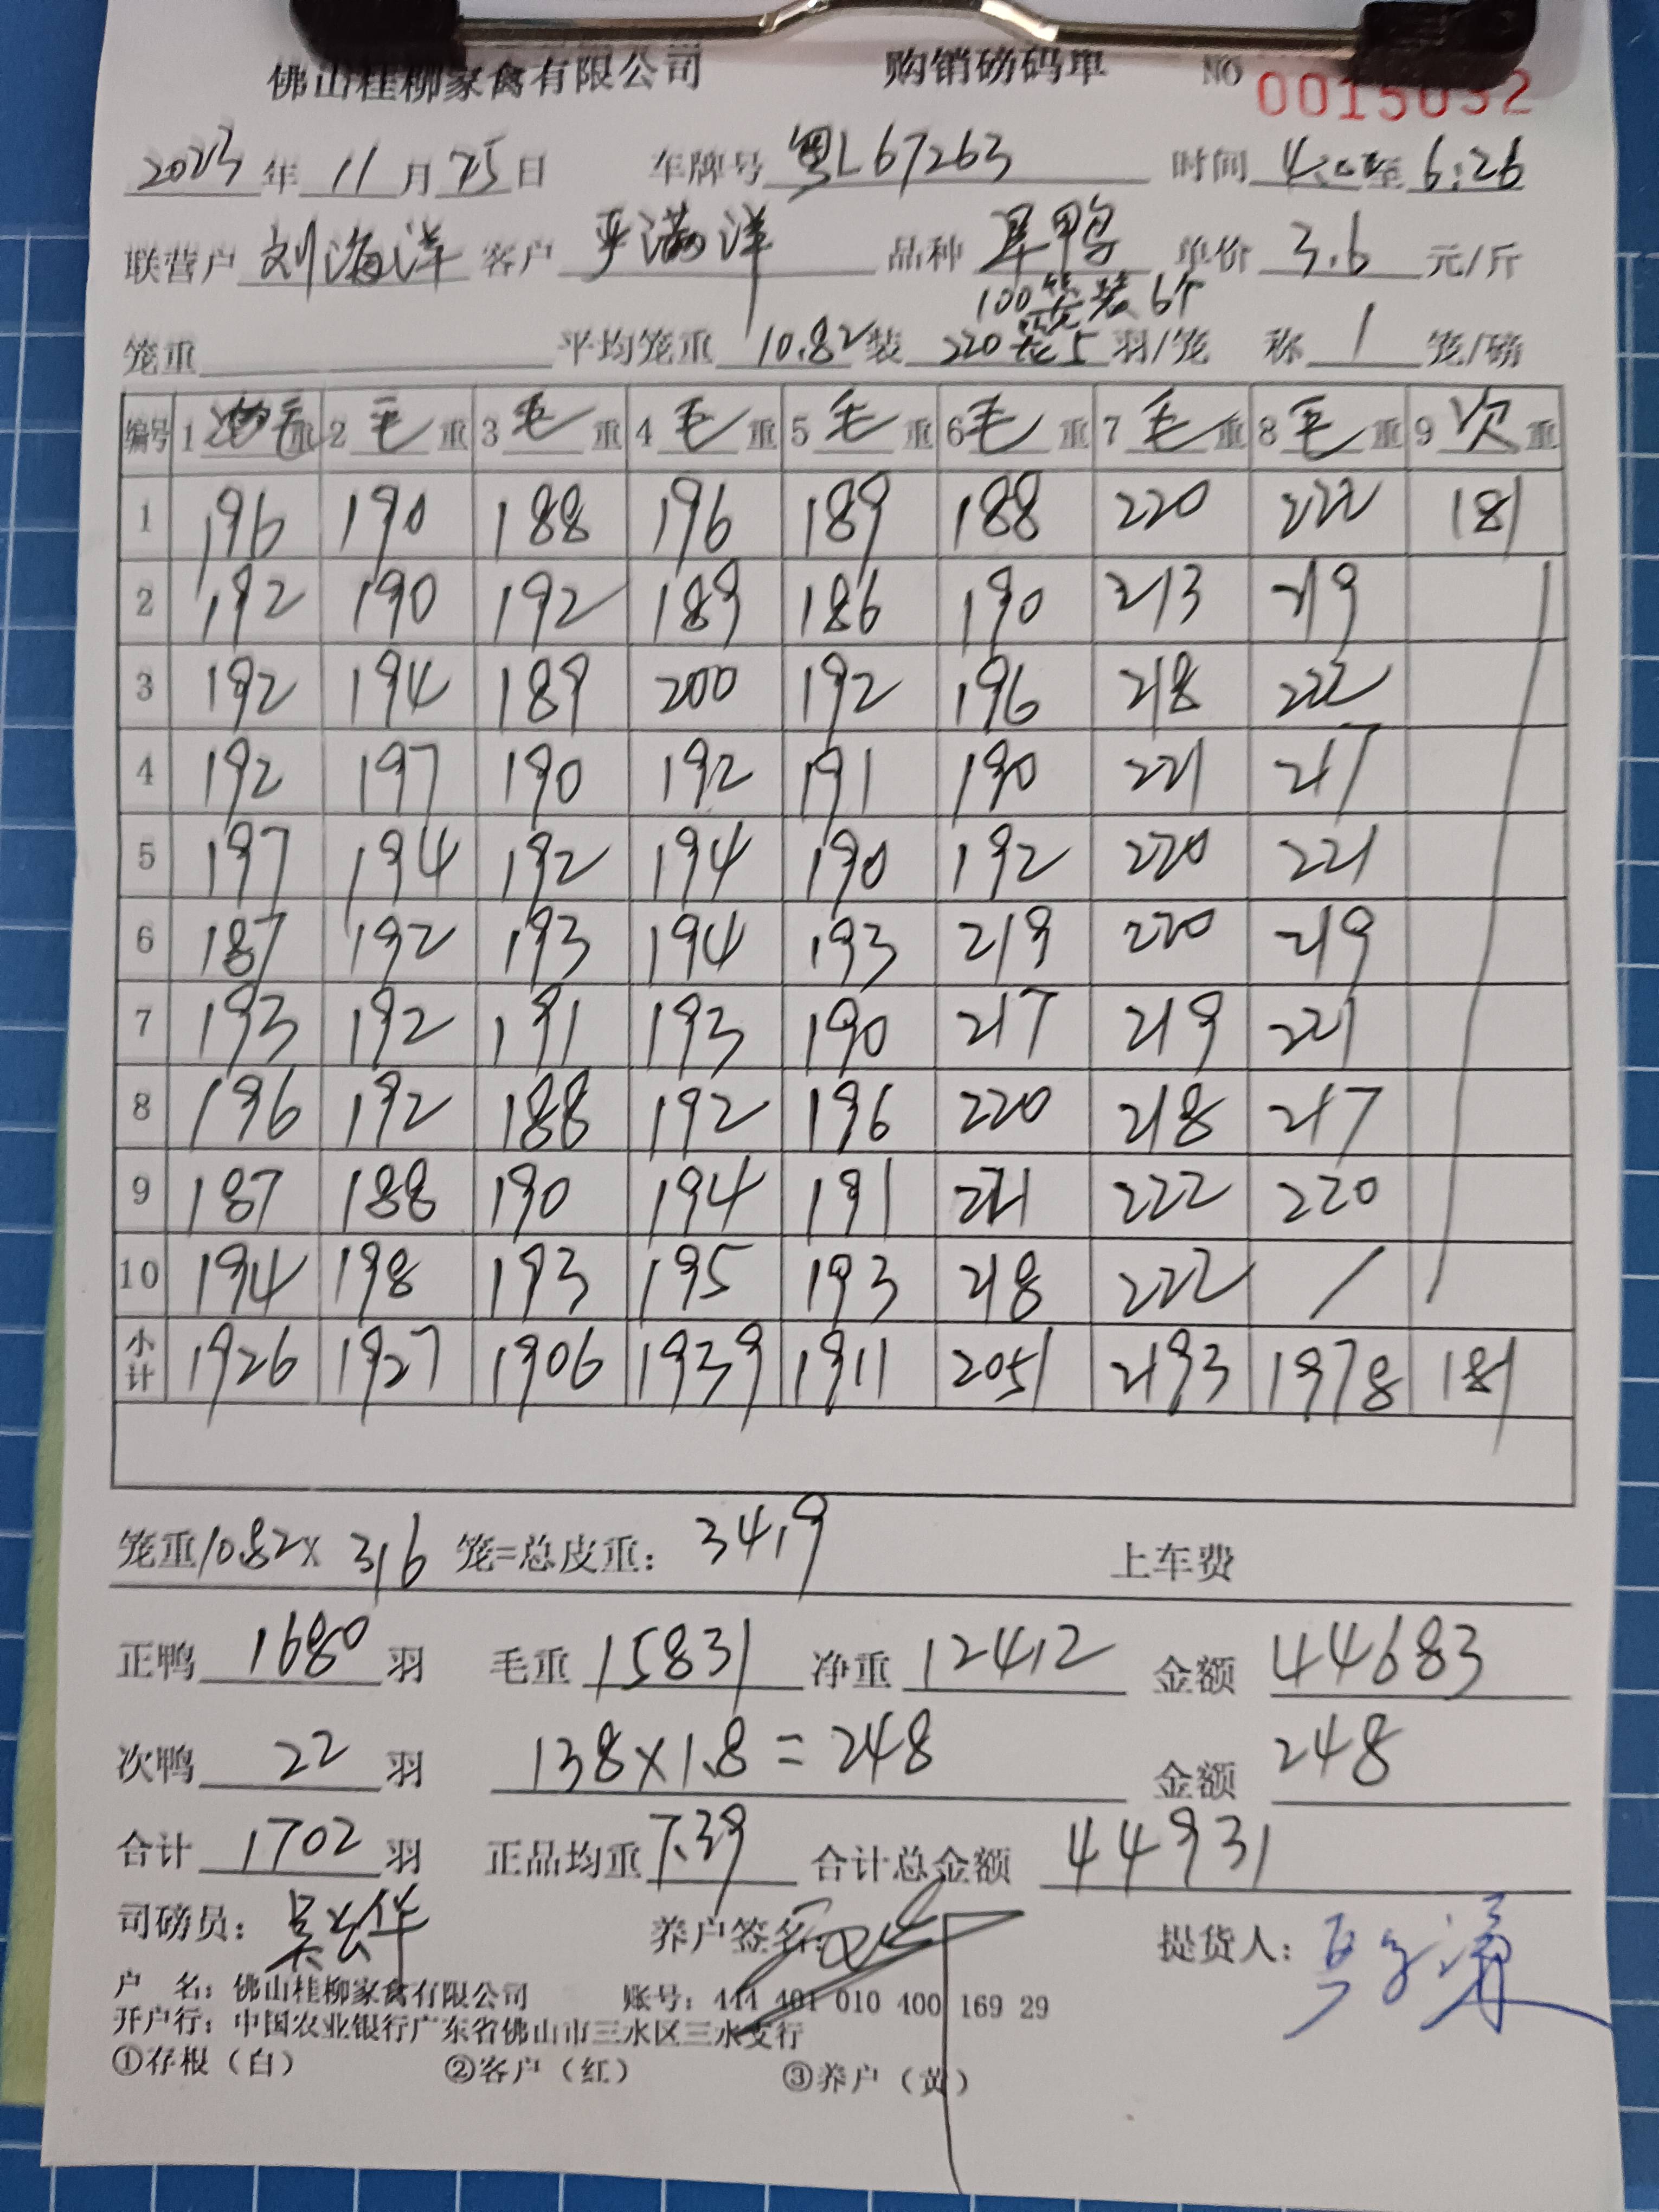 佛山桂柳家禽有限公司 购销磅码单 NO 0015032
2023年11月25日 车牌号 粤L67263 时间 4:02至6:26
联营户 刘海洋 客户 平满洋 品种 旱鸭 单价 3.6 元/斤
100笼装6个
笼重 平均笼重 10.82 装 220笼5 羽/笼 称 1 笼/磅
编号 1 毛重 2 毛重 3 毛重 4 毛重 5 毛重 6 毛重 7 毛重 8 毛重 9 次重
1 196 190 188 196 189 188 220 222 181
2 192 190 192 189 186 190 213 219
3 192 194 189 200 192 196 218 222
4 192 197 190 192 191 190 221 217
5 197 194 192 194 190 192 220 221
6 187 192 193 194 193 219 220 219
7 193 192 191 193 190 217 219 221
8 196 192 188 192 196 220 218 217
9 187 188 190 194 191 221 222 220
10 194 198 193 195 193 218 222 /
小计 1926 1927 1906 1939 1911 2051 2193 1978 181
笼重10.82× 316 笼=总皮重: 3419 上车费
正鸭 1680 羽 毛重 15831 净重 12412 金额 44683
次鸭 22 羽 138×1.8=248 金额 248
合计 1702 羽 正品均重 7.39 合计总金额 44931
司磅员: 吴云华 养户签名: 提货人:
户 名: 佛山桂柳家禽有限公司 账号: 444 401 010 400 169 29
开户行: 中国农业银行广东省佛山市三水区三水支行
①存根（白） ②客户（红） ③养户（黄）